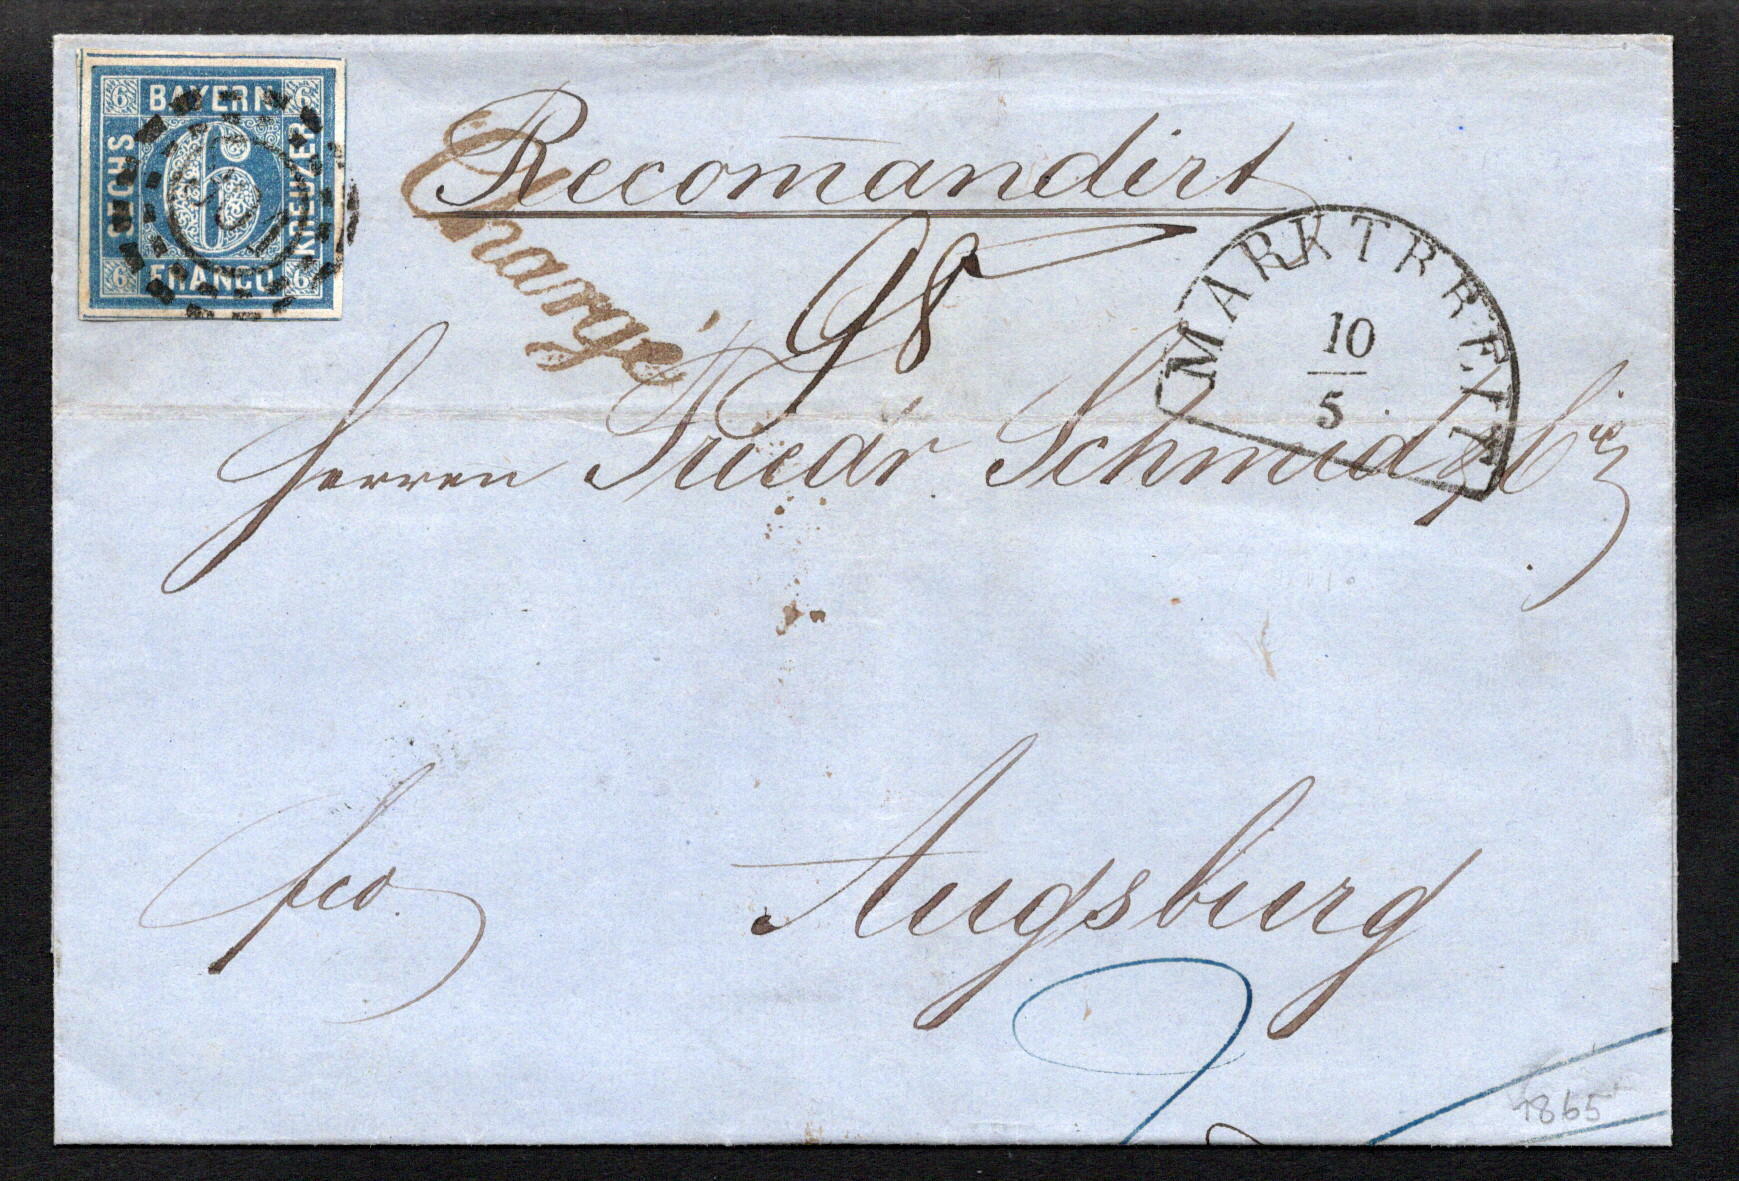 6 BAYERN 6
SECHS
6
KREUZER
6 FRANCO 6
Recom̄andirt
Chargé
98
MARKTBREIT
10
5
Herren Friedr Schmid & Cie
fco
Augsburg
1865